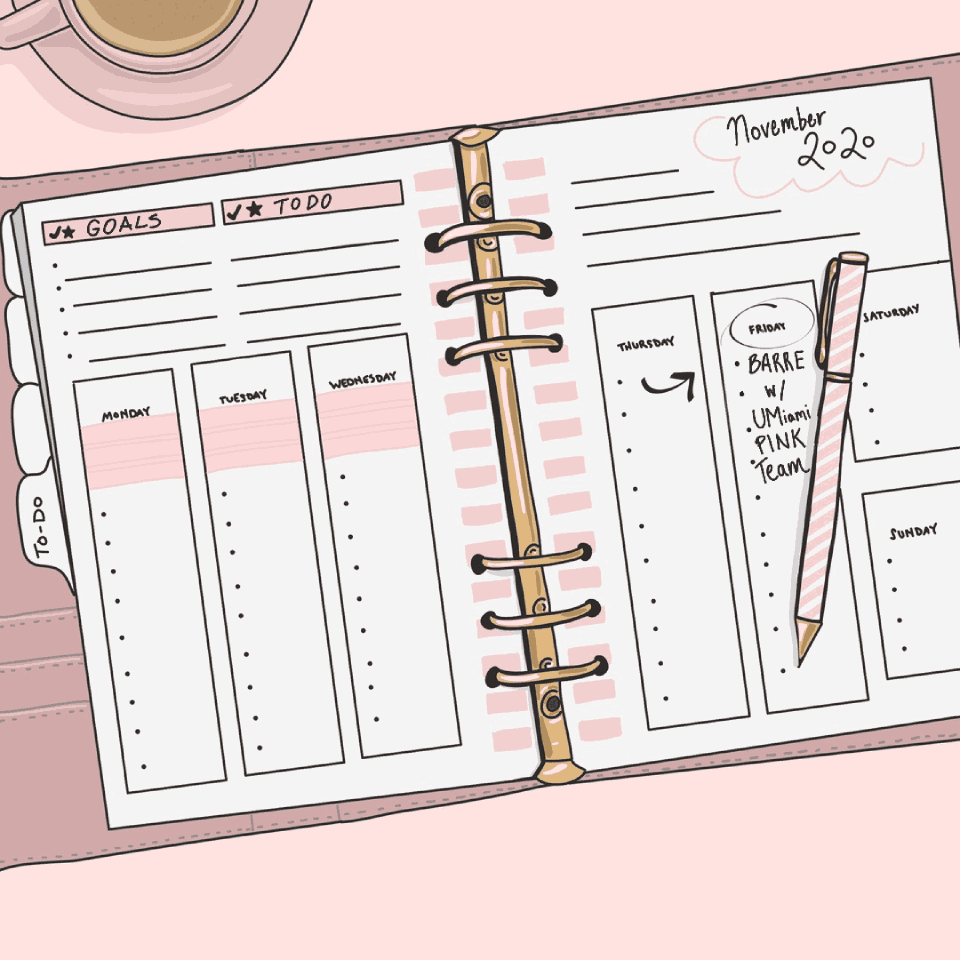 GOALS
TODO
MONDAY
TUESDAY
WEDNESDAY
TO-DO
November
2020
THURSDAY
FRIDAY
BARRE
w/
UMiami
PINK
Team
SATURDAY
SUNDAY